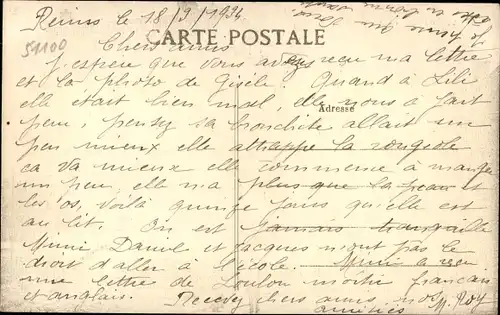 Reims le 18/3/1934
51100
CARTE POSTALE
Chers amis
J'espère que vous avez reçu ma lettre
et la photo de Gisèle. Quand à Lili
elle était bien mal, elle nous a fait
Adresse
peur, pensez sa bronchite allait un
peu mieux elle attrappe la rougeole
ça va mieux elle commence à manger
un peu, elle n'a plus que la peau et
les os, voilà quinze jours qu'elle est
au lit. On est jamais tranquille
Mimi Daniel et Jacques n'ont pas le
droit d'aller à l'école. Mimi a reçu
une lettre de Loulou moitié francais
et anglais. Recevez chers amis nos
amitiés M. Roy